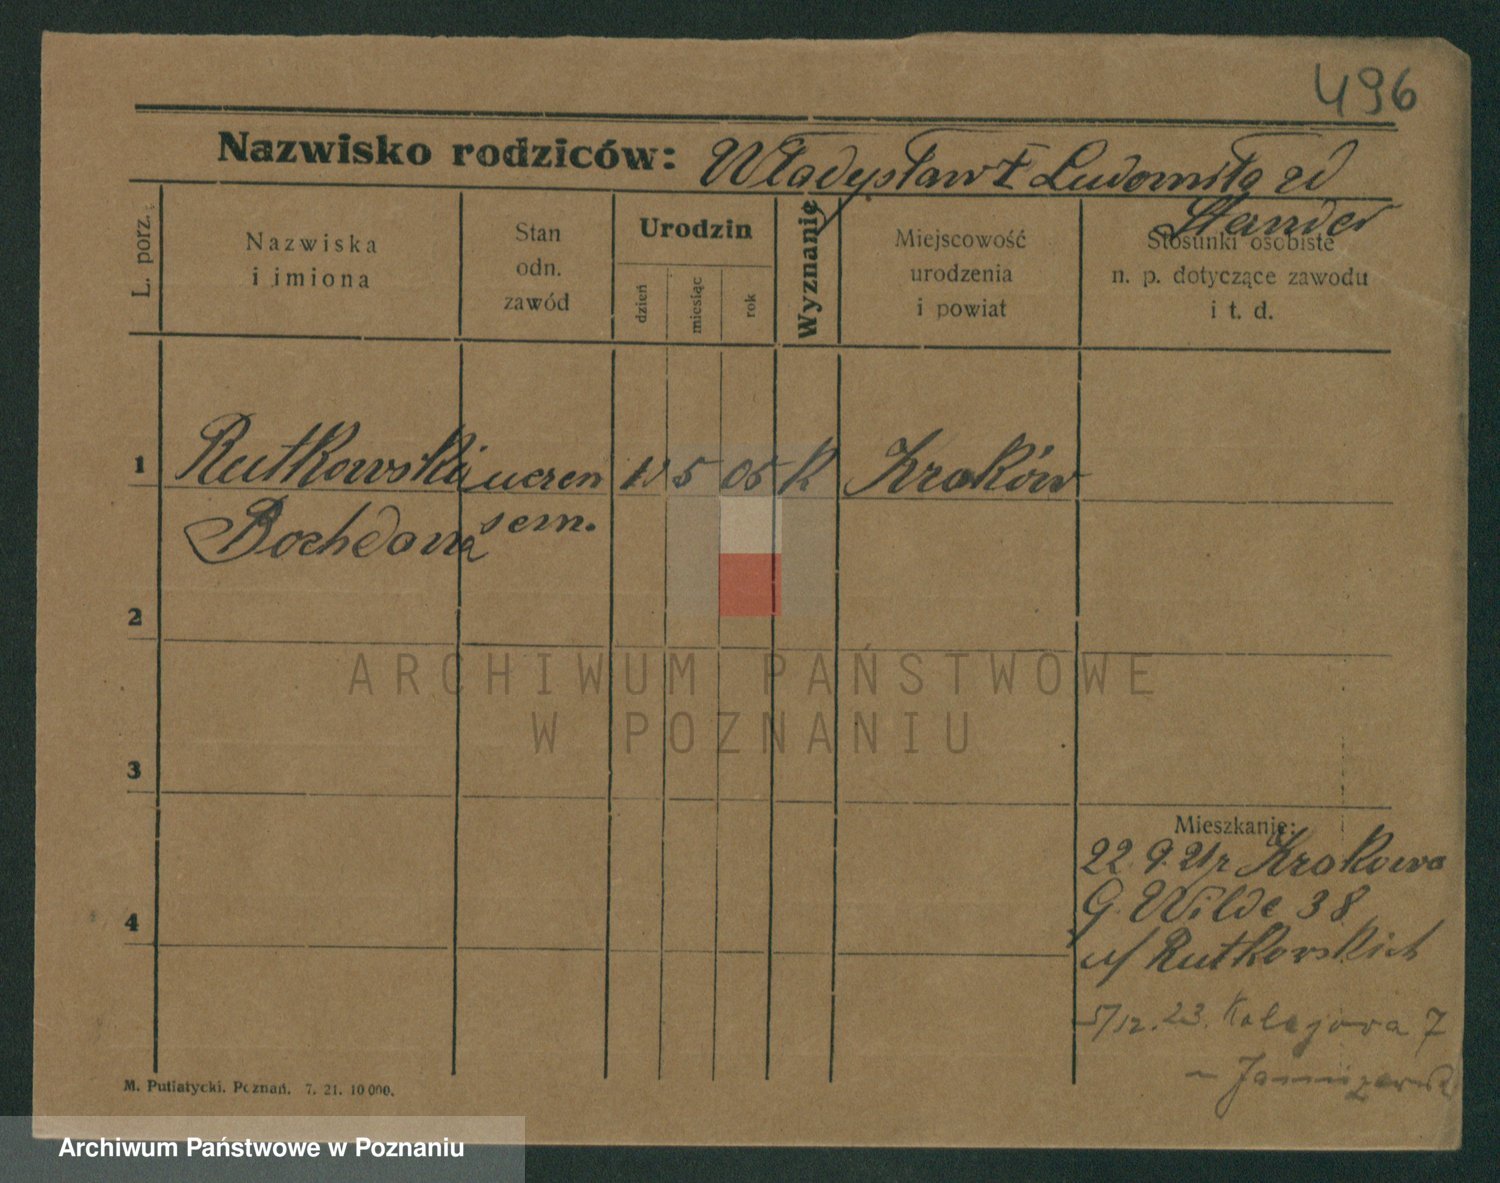 496
Nazwisko rodziców: Władysław i Ludomiła zd
Stander
L. porz.
Nazwiska
i imiona
Stan
odn.
zawód
Urodzin
dzień
miesiąc
rok
Wyznanie
Miejscowość
urodzenia
i powiat
Stosunki osobiste
n. p. dotyczące zawodu
i t. d.
1 Rutkowski uczen 5 05 K Kraków
Bochdana sem.
2
3
4
Mieszkanie:
22.9.21 z Krakowa
G. Wilde 38
u/ Rutkowskich
5/12.23. Kolejowa 7
M. Putiatycki. Poznań. 7. 21. 10 000.
ARCHIWUM PAŃSTWOWE
W POZNANIU
Archiwum Państwowe w Poznaniu